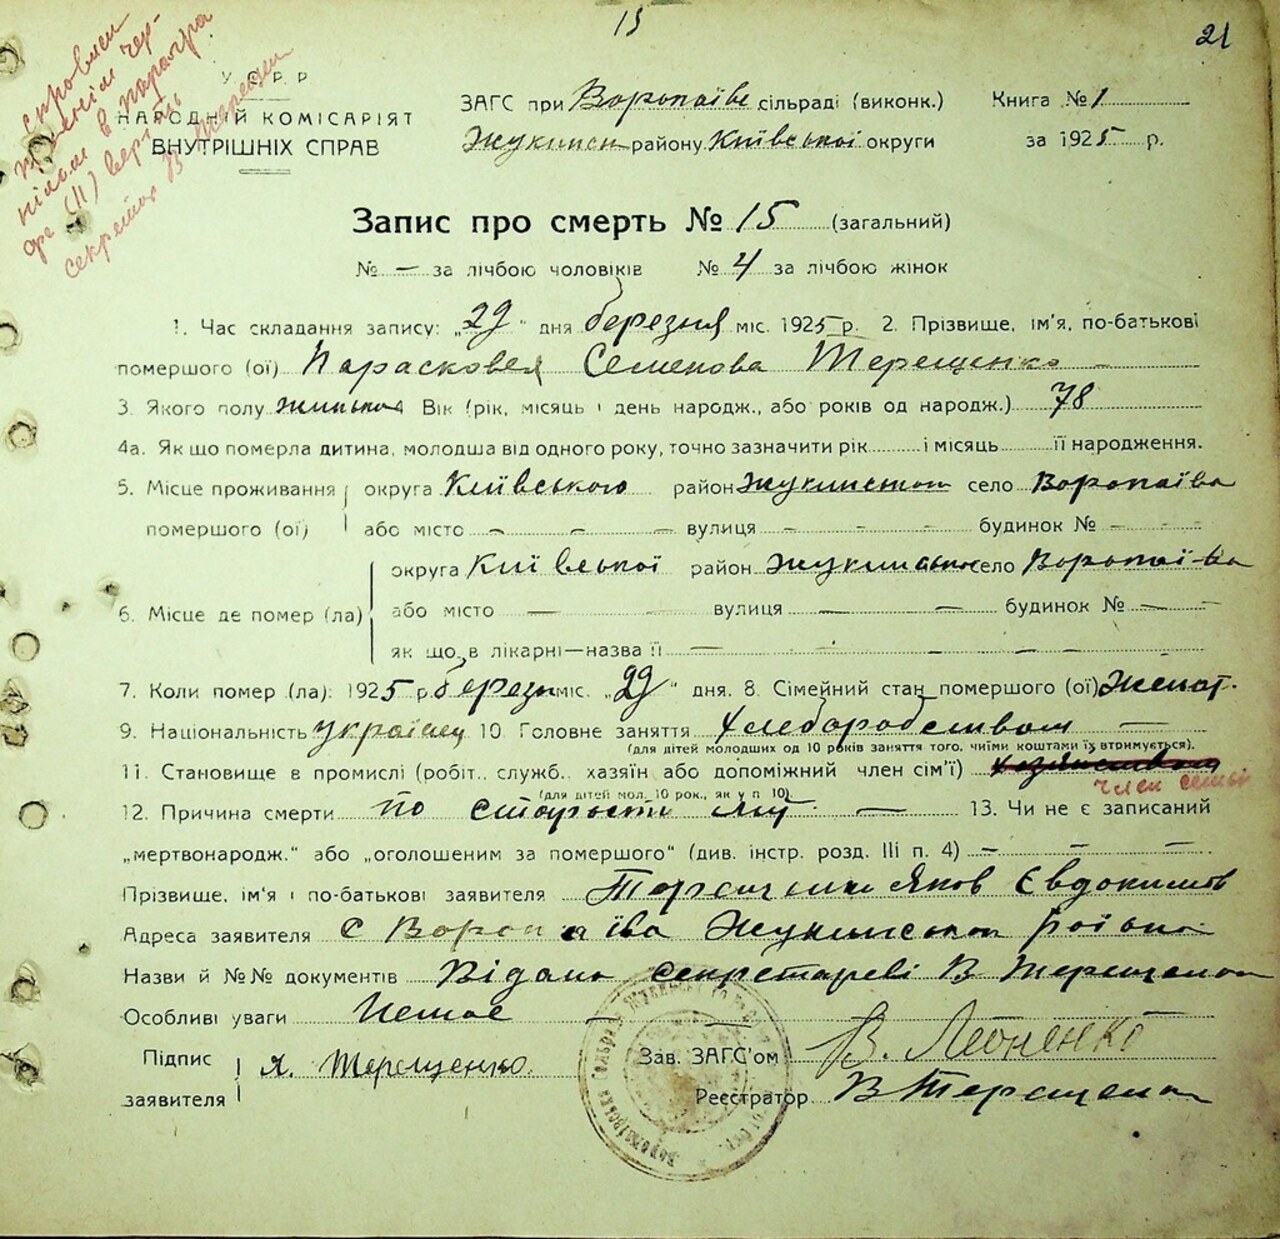 15
21
У.С.Р.Р
НАРОДНІЙ КОМІСАРІЯТ
ВНУТРІШНІХ СПРАВ
ЗАГС при Воропаїве сільраді (виконк.)
району Київської округи
Книга № 1
за 1925 р.
Запис про смерть № 15 (загальний)
№ — за лічбою чоловіків № 4 за лічбою жінок
1. Час складання запису: „29" дня березня міс. 1925 р. 2. Прізвище, ім'я, по-батькові
помершого (ої) Парасковея Семенова Терещенко —
3. Якого полу Вік (рік, місяць і день народж., або років од народж.) 78
4а. Як що померла дитина, молодша від одного року, точно зазначити рік і місяць її народження.
5. Місце проживання округа Київського район село Воропаїва
помершого (ої) або місто — — — вулиця — — — будинок № — —
6. Місце де помер (ла) округа Київської район село Воропаїва
або місто — — вулиця — — будинок № — —
як що в лікарні—назва її — — — —
7. Коли помер (ла): 1925 р. міс. „29" дня. 8. Сімейний стан помершого (ої) Женат.
9. Національність українец 10. Головне заняття хлебаробством —
(для дітей молодших од 10 років заняття того, чиїми коштами їх втримується).
11. Становище в промислі (робіт., служб., хазяїн або допоміжний член сім'ї)
член семьи
(для дітей мол. 10 рок., як у п. 10).
12. Причина смерти по старости — 13. Чи не є записаний
„мертвонародж." або „оголошеним за помершого" (див. інстр. розд. III п. 4) — — — —
Прізвище, ім'я і по-батькові заявителя Яков Євдокимов
Адреса заявителя с Воропаїва
Назви й №№ документів Відано Секретареві В Терещенком
Особливі уваги Немае — —
Підпис заявителя Я. Терещенко
Зав. ЗАГС'ом В. Леоненко
Реєстратор В Терещенко